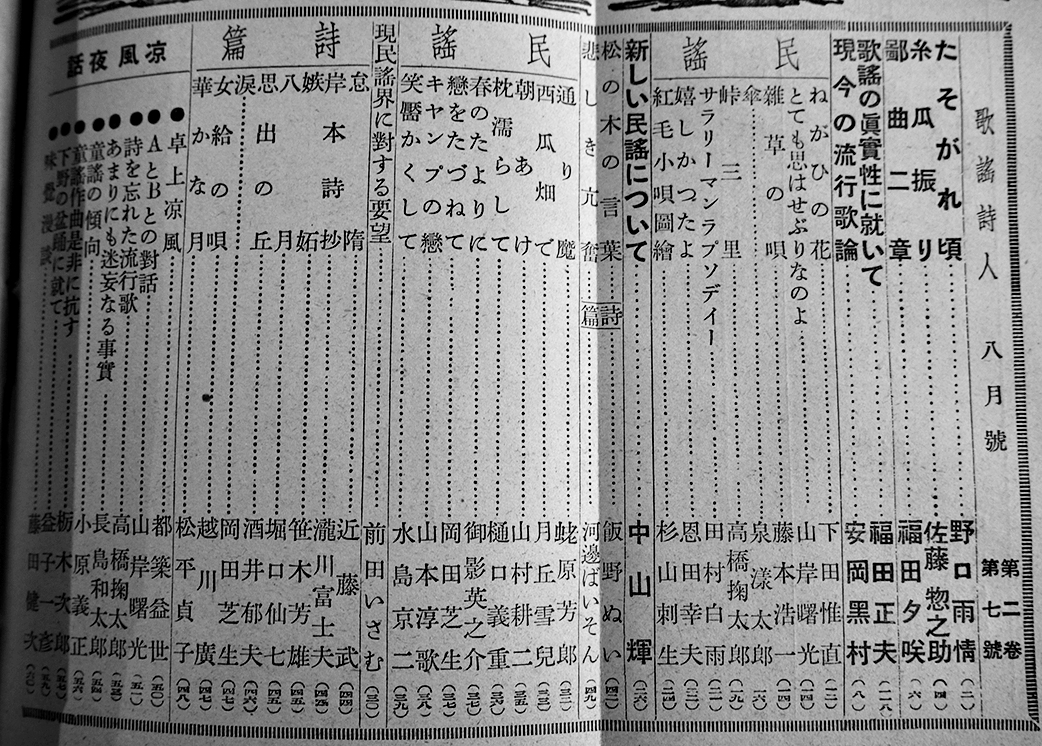 歌謠詩人 八月號
第二卷
第七號
たそがれ頃 野口雨情 (二)
糸瓜振り 佐藤惣之助 (四)
鄙曲二章 福田夕咲 (六)
歌謠の眞實性に就いて 福田正夫 (一八)
現今の流行歌論 安岡黑村 (八)
民謠
ねがひの花 下田惟直 (一二)
とても思はせぶりなのよ 山岸曙光
雜草の唄 藤本浩一
傘 泉漾太郎
峠三里 高橋掬太郎
サラリーマンラプソディー 田村白雨
嬉しかつたよ 恩田幸夫
紅毛小唄圖繪 杉山刺生 (二四)
新しい民謠について 中山輝 (二六)
松の木の言葉 詩篇 飯野ぬい
悲しき亢奮 河邊ばいそん (四九)
民謠
通り魔 蛯原芳郎 (三二)
西瓜畑で 月丘雪兒 (三三)
朝あけ 山村耕二 (三五)
枕濡らして 樋口義重 (三六)
春のたよりに 御影英之介
戀をたづねて 岡田芝生
キャンプの戀 山本淳歌 (三八)
笑靨かくして 水島京二 (三九)
現民謠界に對する要望 前田いさむ (三〇)
詩篇
怠惰 近藤武 (四四)
岸本詩抄 瀧川富士夫
嫉妬 笹木芳雄
八月 堀口仙七
思出の丘 酒井郁夫
淚 岡田芝生 (四七)
女給の唄 越川廣
華かな月 松平貞子 (四八)
凉風夜話
●卓上凉風 都築益世 (五〇)
●AとBとの對話 山岸光
●詩を忘れた流行歌 高橋掬太郎
●あまりにも迷妄なる事實 長島和太郎 (五四)
●童謠の傾向 小原義正 (五六)
●童謠作曲是非に抗す 栃木次郎 (五七)
●下野の盆踊に就て 益子一彥 (五九)
●味覺漫談 藤田健次 (六〇)